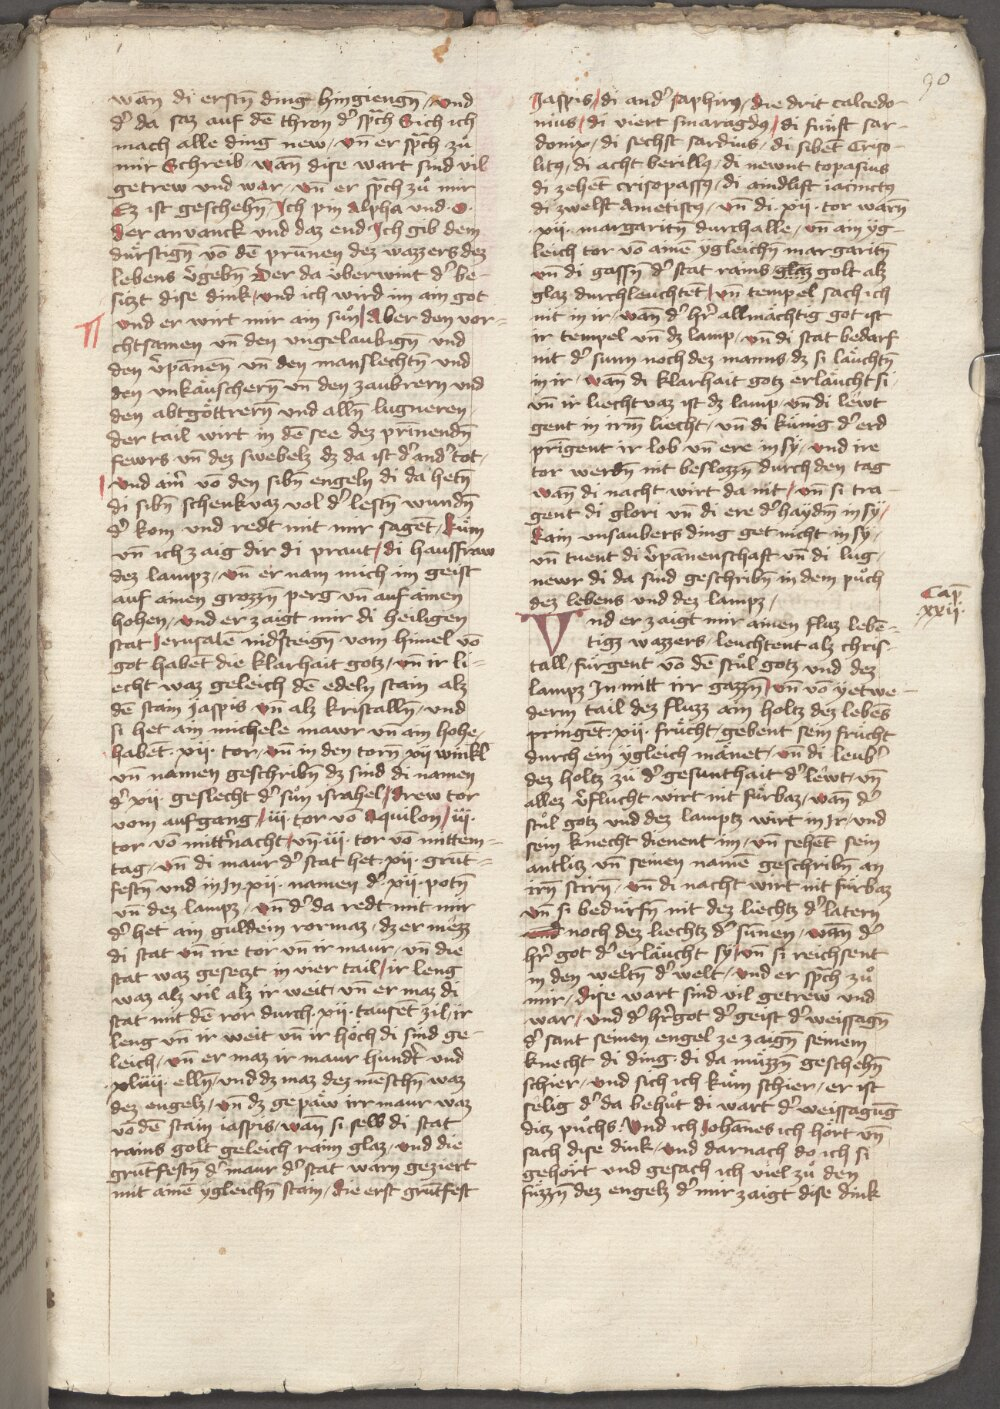 90
wan̄ di erstn̄ ding hingiengn̄ / und
d' da saz auf dē thron d' sp̄ch Sich ich
mach alle ding new / vn̄ er sp̄ch zů
mir Schreib / wan̄ dise wart sind vil
getrew vnd war / vn̄ er sp̄ch zů mir
Ez ist geschehn̄ / Ich pin Alpha vnd O.
Der anvanck vnd daz end / Ich gib dem
dürstign̄ vō dē prunnen dez wazzers dez
lebens v̓gebn̄ Der da vberwint d' be-
sitzt dise dink / vnd ich wird im ain got
vnd er wirt mir ain sun / Aber den vor-
chtsamen vn̄ den vngelaubign̄ vnd
den v̓pānnen vn̄ den manslechtn̄ vnd
den vnkäuschern̄ vn̄ den zaubrern vnd
den abtgöttrern̄ vnd alln̄ lugneren
der tail wirt in dē see dez prinendn̄
fewrs vn̄ dez swebelz dz da ist d' and' tot /
vnd ain' vō den sibn̄ engeln̄ di da hetn̄
di sibn̄ schenkvaz vol d' lestn̄ wundn̄
d' kom vnd redt mit mir saget / kům
vn̄ ich zaig dir di praut / di hausfraw
dez lampz / vn̄ er nam mich im geist
auf ainen grozzn̄ perg vn̄ auf ainen
hohen / vnd er zaigt mir di heiligen
stat Jerusalē nid'steign̄ vom himel vō
got habēt die klarhait gotz / vn̄ ir li-
echt waz geleich dē edeln̄ stain alz
dē stain Jaspis vn̄ alz kristalln̄ / vnd
si het ain michele mawr vn̄ ain hohe /
habēt · xii · tor / vn̄ in den torn̄ xii winkl
vn̄ namen geschribn̄ dz sind di namen
d' xii · geslecht d' sůn israhel / drew tor
vom aufgang / iii · tor vō Aquilon / iii ·
tor vō mitt'nacht / vn̄ iii · tor vō mittem-
tag / vn̄ di maur d' stat het · xii · grūt-
festn̄ vnd in Jn · xii · namen d' · xii · potn̄
vn̄ dez lampz / vn̄ d' da redt mit mir
d' het ain guldein rormaz / dz er mězz
di stat vn̄ ire tor vn̄ ir maur / vn̄ die
stat waz gesetzt in vier tail / ir leng
waz alz vil alz ir weit / vn̄ er maz di
stat mit dē ror durch · xii · tausēt zil / ir
leng vn̄ ir weit vn̄ ir höch di sind ge-
leich / vn̄ er maz ir maur hund't vnd
· xliiii · elln̄ / vnd dz maz dez menschn̄ waz
dez engelz / vn̄ dz gepäw irr maur waz
vō dē stain iaspis / wan̄ si selb di stat
rains golt geleich raim glaz / vnd die
gruntfestn̄ d' maur d' stat warn geziert
mit ainē ygleichn̄ stain / die erst grūtfest
Jaspis / di and' saphirus / die drit calcedo-
nius / di viert smaragdus / di funft sar-
donix / di sechst sardius / di sibēt Criso-
litus / di acht berillus / di newnt topasius
di zehēt crisopassus / di aindlift iacinctus
di zwelft Ametistus / vn̄ di · xii · tor warn̄
· xii · margaritn̄ durch alle / vn̄ ain yg-
leich tor vō ainē ygleichn̄ margaritn̄
vn̄ di gassn̄ d' stat rains glaz golt alz
glaz durchleuchtēt / vn̄ tempel sach ich
nit in ir / wan̄ d' h'r allmächtig got ist
ir tempel vn̄ dz lamp / vn̄ di stat bedarf
nit d' sunn noch dez manns dz si läuchtn̄
in ir / wan̄ di klarhait gotz erläucht si
vn̄ ir liechtvaz ist dz lamp / vn̄ di lewt
gent in irm̄ liecht / vn̄ di kunig d' erd
pringent ir lob vn̄ ere in sy / vnd ire
tor werdn̄ nit beslozzn̄ durch den tag
wan̄ di nacht wirt da nit / vn̄ si tra-
gent di glori vn̄ di ere d' haydn̄ in sy /
kain vnsaubers ding get nicht in sy /
vn̄ tuent di v̓pānnenschaft vn̄ di lug /
newr di da sind geschribn̄ in dem půch
dez lebens vnd dez lampz /
Cap̄
xxii ·
Vnd er zaigt mir ainen fluz lebē-
tigz wazzers / leuchtent alz chris-
tall / fürgent vō dē stůl gotz vnd dez
lampz In mitt irr gazzn̄ / vn̄ vō yetwe-
derm tail dez fluzz ain holtz dez lebēs
pringēt · xii · frücht / gebent sein frücht
durch ein ygleich mānet / vn̄ di leub'
dez holtz zů d' gesunthait d' lewt / vn̄
allez v̓flucht wirt nit fürbaz / wan̄ d'
stůl gotz vnd dez lamptz wirt in Jr / vnd
sein knecht dienent im / vn̄ sehēt sein
antlitz vn̄ seinen namē geschribn̄ an
irn̄ stirn̄ / vn̄ di nacht wirt nit fürbaz
vn̄ si bedürfn̄ nit dez liechtz d' latern
vnd noch dez liechtz d' sūnen / wan̄ d'
h'r got d' erläucht sy / vn̄ si reichsent
in den weltn̄ d' welt / vnd er sp̄ch zů
mir / dise wart sind vil getrew vnd
war / vnd d' h'r got d' geist d' weissagn̄
d' sant seinen engel ze zaign̄ seinem
knecht di ding / di da müzzn̄ geschehn̄
schier / vnd sich ich kům schier / er ist
selig d' da behůt di wart d' weissagūg
ditz půchs / Vnd ich Johānes ich hört vn̄
sach dise dink / vnd darnach do ich si
gehört vnd gesach ich viel zů den
füzzn̄ dez engelz d' mir zaigt dise dink